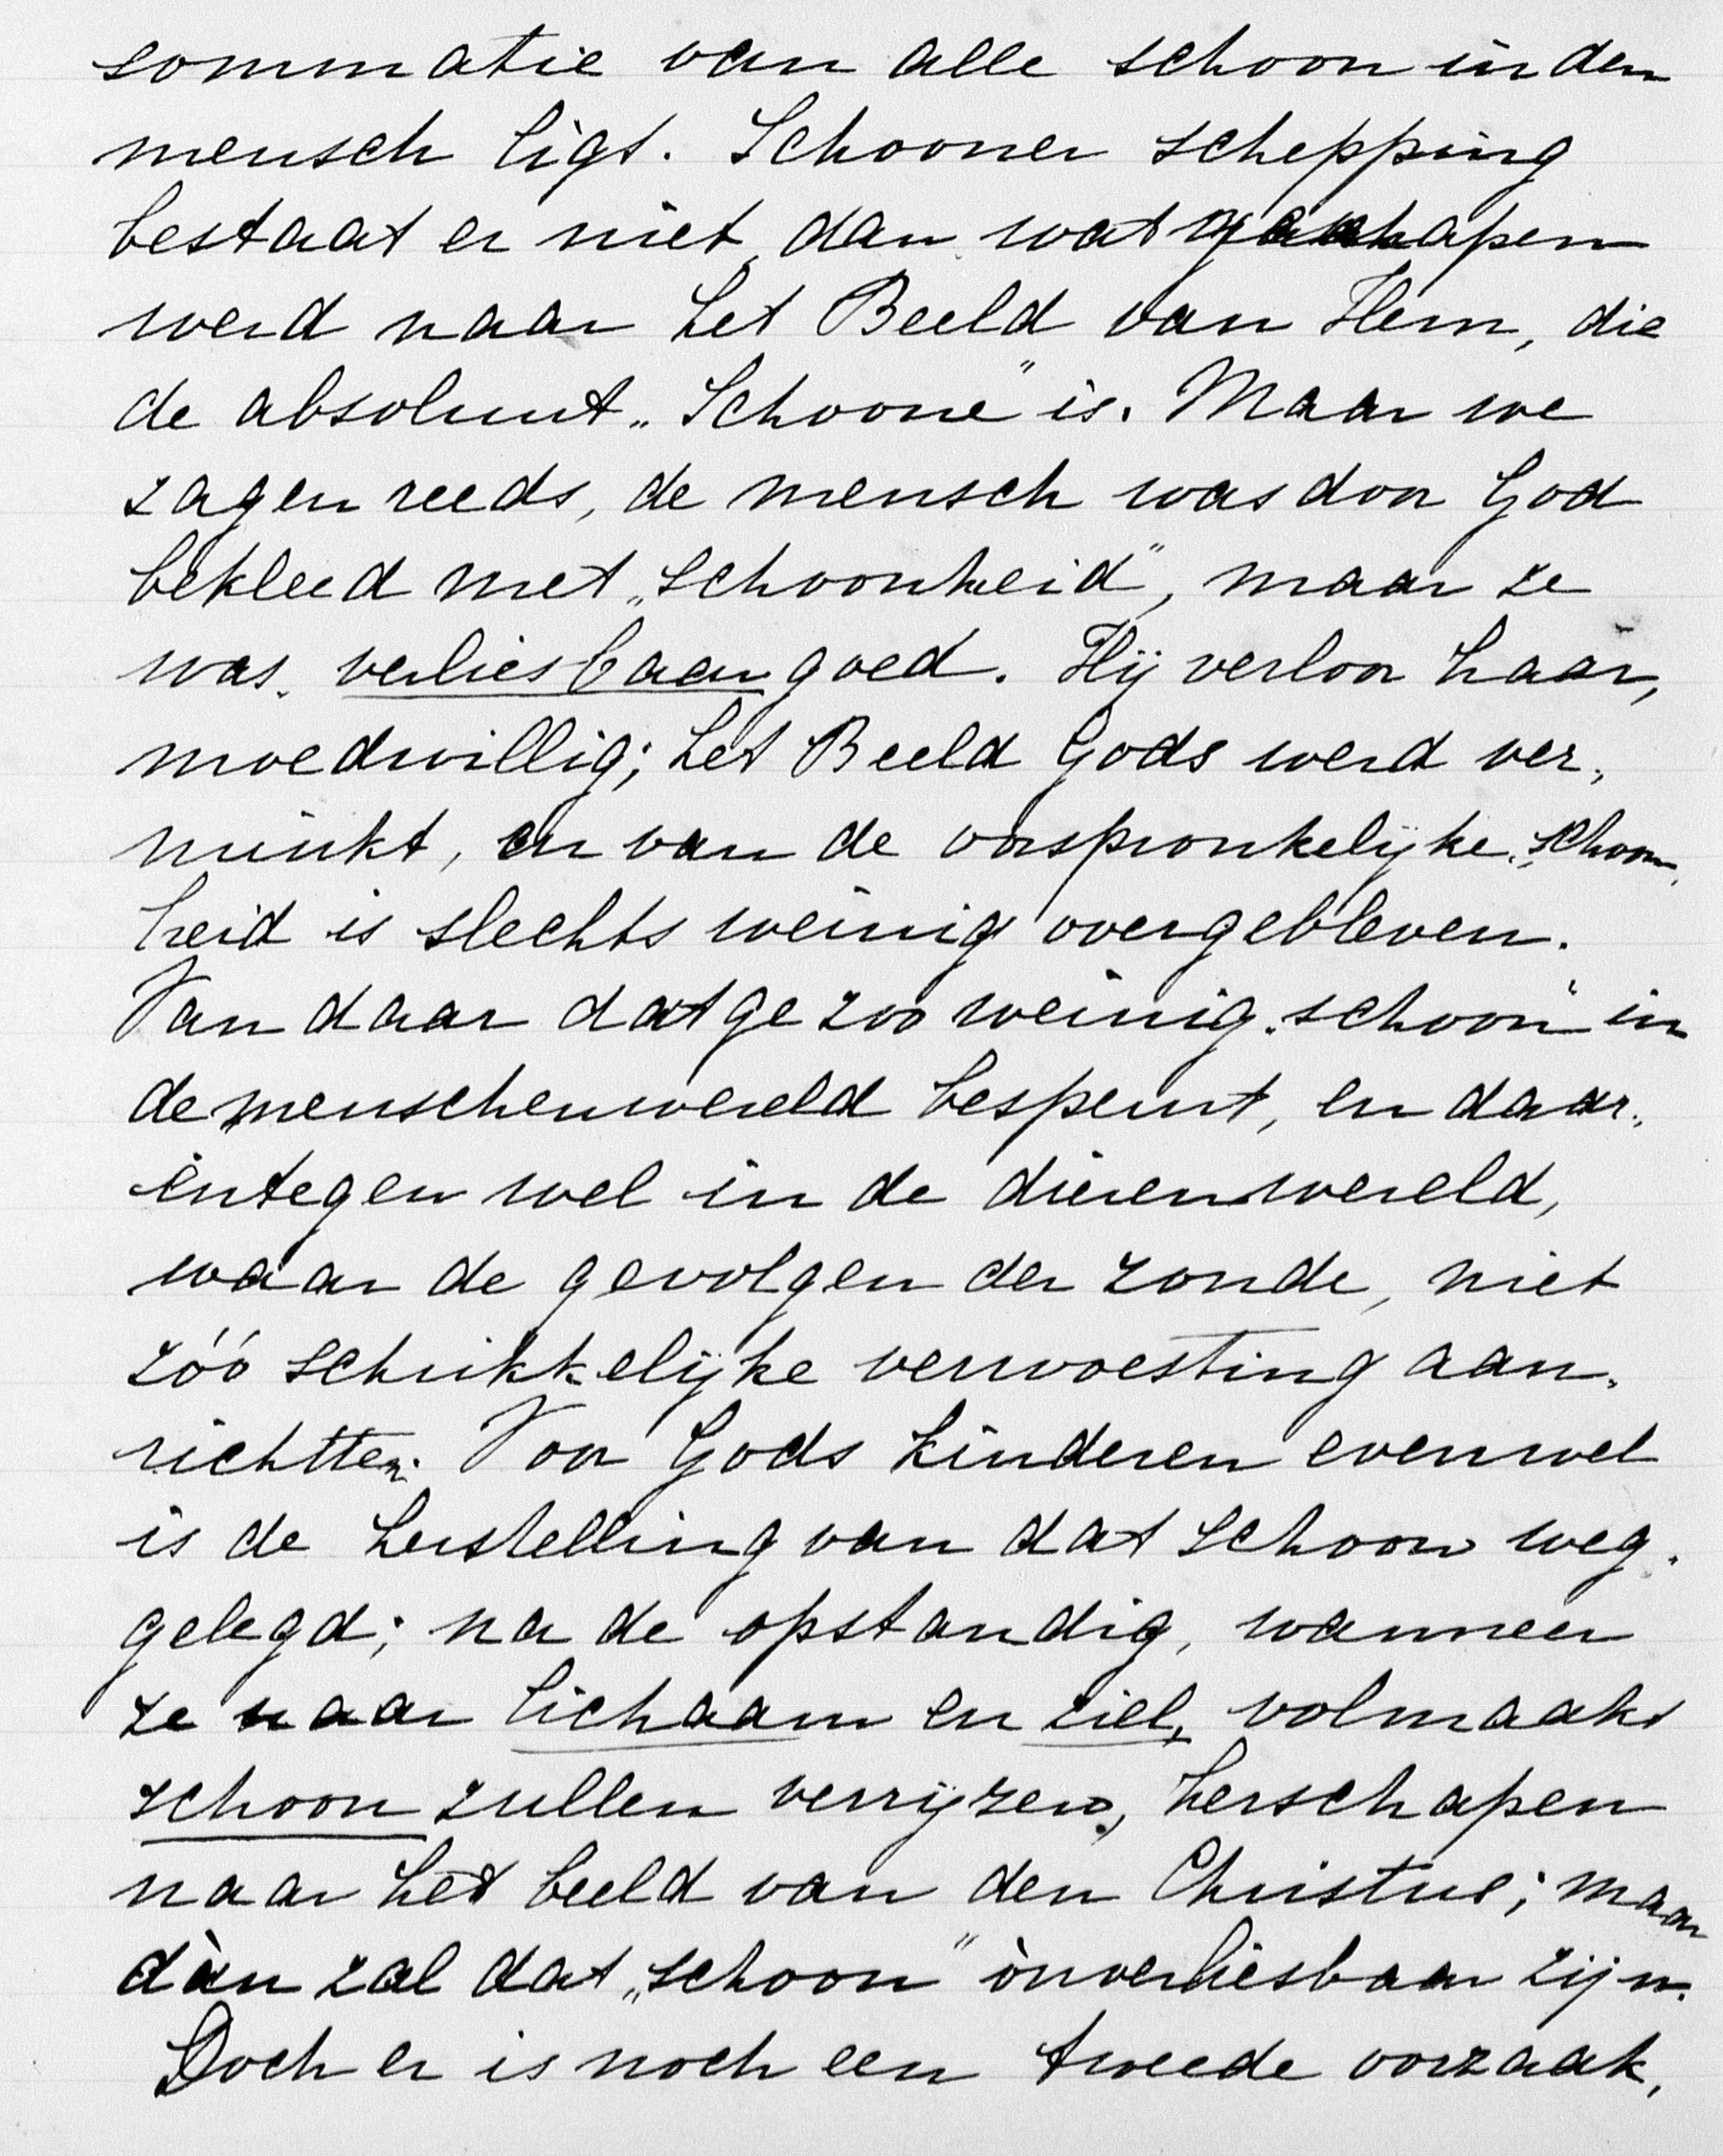 sommatie van alle schoon in den
mensch ligt. Schooner schepping
bestaat er niet, dan wat geschapen
werd naar het Beeld van Hem, die
de absoluut „Schoone" is. Maar we
zagen reeds, de mensch was door God
bekleed met „schoonheid", maar ze
was verliesbaar goed. Hij verloor haar,
moedwillig; het Beeld Gods werd ver„
minkt, en van de oorspronkelijke schoon„
heid is slechts weinig overgebleven.
Van daar dat ge zoo weinig „schoon" in
de menschenwereld bespeurt, en daar„
entegen wel in de dierenwereld,
waar de gevolgen der zonde, niet
zóó schrikkelijke verwoesting aan„
richtten. Voor Gods kinderen evenwel
is de herstelling van dat schoon weg„
gelegd; na de opstandig, wanneer
ze naar lichaam en ziel, volmaakt
schoon zullen verrijzen, herschapen
naar het beeld van den Christus; maar
dàn zal dat „schoon" ònverliesbaar zijn.
Doch er is noch een tweede oorzaak,